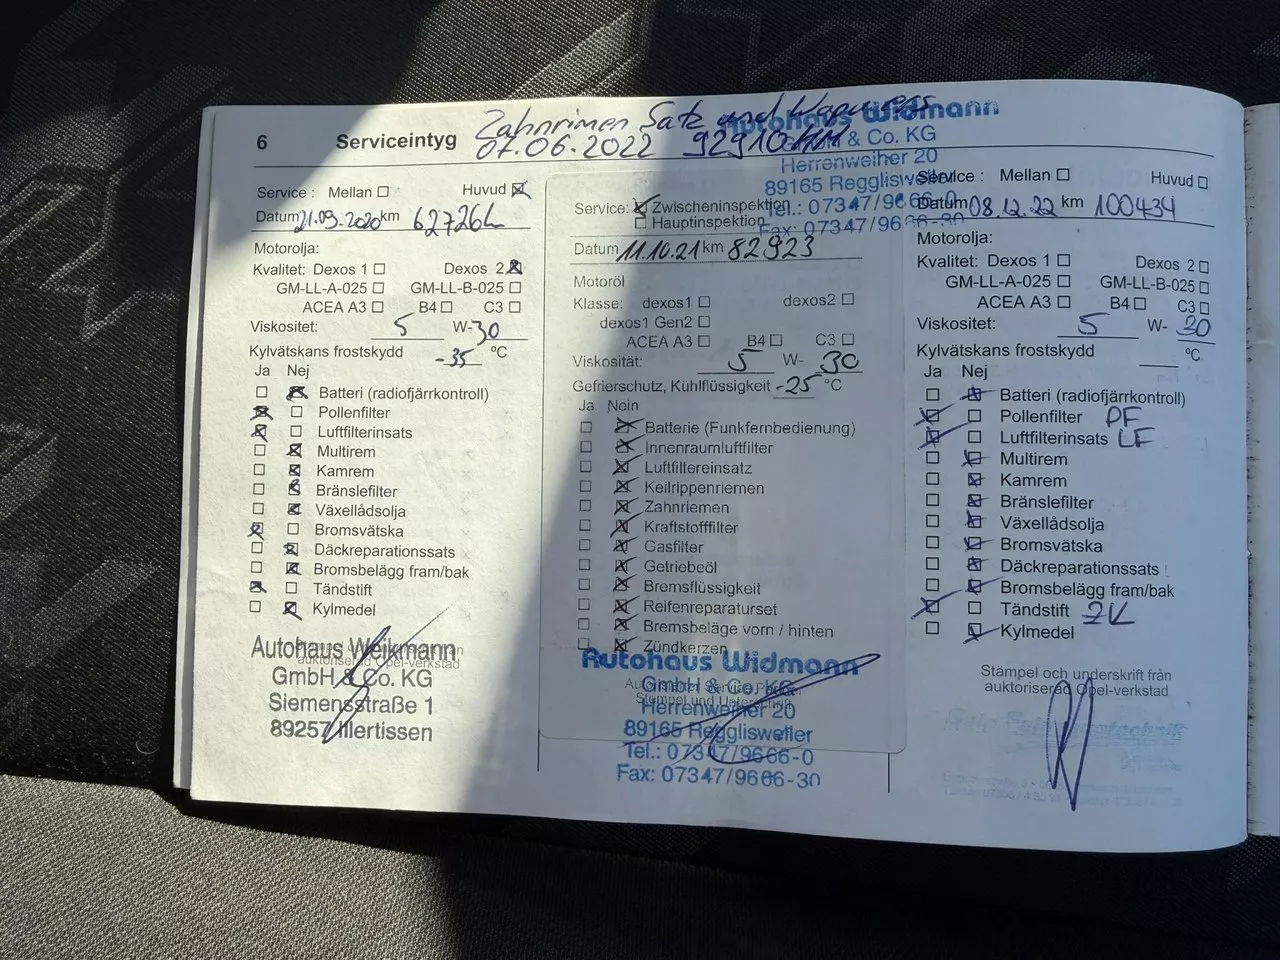 6 Serviceintyg
Zahnrimen Satz und
07.06.2022 92910 KM
Autohaus Widmann
GmbH & Co. KG
Herrenweiher 20
89165 Regglisweiler
Tel.: 07347/9666-0
Fax: 07347/9666-30
Service : Mellan Huvud
Datum 21.09.2020 km 62726
Motorolja:
Kvalitet: Dexos 1 Dexos 2
GM-LL-A-025 GM-LL-B-025
ACEA A3 B4 C3
Viskositet: 5 W-30
Kylvätskans frostskydd -35 °C
Ja Nej
Batteri (radiofjärrkontroll)
Pollenfilter
Luftfilterinsats
Multirem
Kamrem
Bränslefilter
Växellådsolja
Bromsvätska
Däckreparationssats
Bromsbelägg fram/bak
Tändstift
Kylmedel
auktoriserad Opel-verkstad
Autohaus Weikmann
GmbH & Co. KG
Siemensstraße 1
89257 Illertissen
Service: Zwischeninspektion
Hauptinspektion
Datum 11.10.21 km 82923
Motoröl
Klasse: dexos1 dexos2
dexos1 Gen2
ACEA A3 B4 C3
Viskosität: 5 W- 30
Gefrierschutz, Kühlflüssigkeit -25 °C
Ja Nein
Batterie (Funkfernbedienung)
Innenraumluftfilter
Luftfiltereinsatz
Keilrippenriemen
Zahnriemen
Kraftstofffilter
Gasfilter
Getriebeöl
Bremsflüssigkeit
Reifenreparaturset
Bremsbeläge vorn / hinten
Zündkerzen
Autohaus Widmann
GmbH & Co. KG
Herrenweiher 20
89165 Regglisweiler
Tel.: 07347/9666-0
Fax: 07347/9666-30
Service : Mellan Huvud
Datum 08.12.22 km 100434
Motorolja:
Kvalitet: Dexos 1 Dexos 2
GM-LL-A-025 GM-LL-B-025
ACEA A3 B4 C3
Viskositet: 5 W- 30
Kylvätskans frostskydd °C
Ja Nej
Batteri (radiofjärrkontroll)
Pollenfilter PF
Luftfilterinsats LF
Multirem
Kamrem
Bränslefilter
Växellådsolja
Bromsvätska
Däckreparationssats
Bromsbelägg fram/bak
Tändstift ZK
Kylmedel
Stämpel och underskrift från
auktoriserad Opel-verkstad